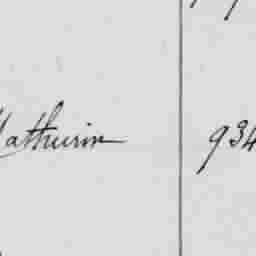 Mathurin 934